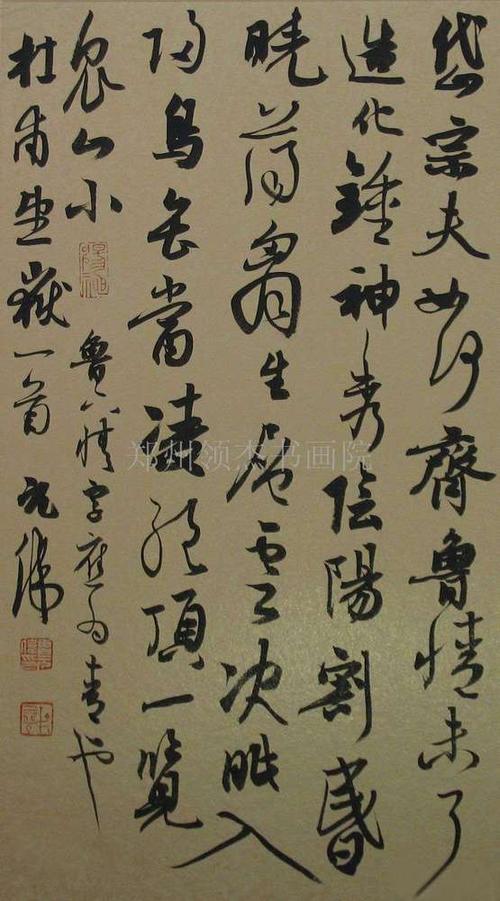 岱宗夫如何齊魯情未了
造化鍾神秀陰陽割昏
曉蕩胷生層雲決眦入
歸鳥會當淩絕頂一覽
眾山小
魯下情字應為青也
杜甫望嶽一首
郑州领杰书画院